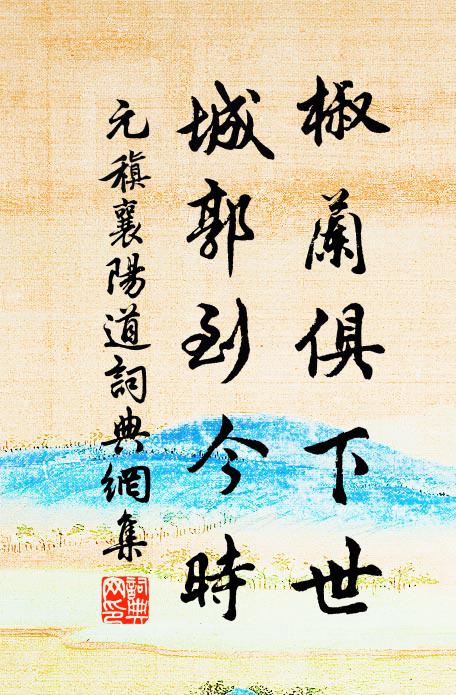 椒蘭俱下世
城郭到今時
元稹襄陽道詞典網集
詞典網印